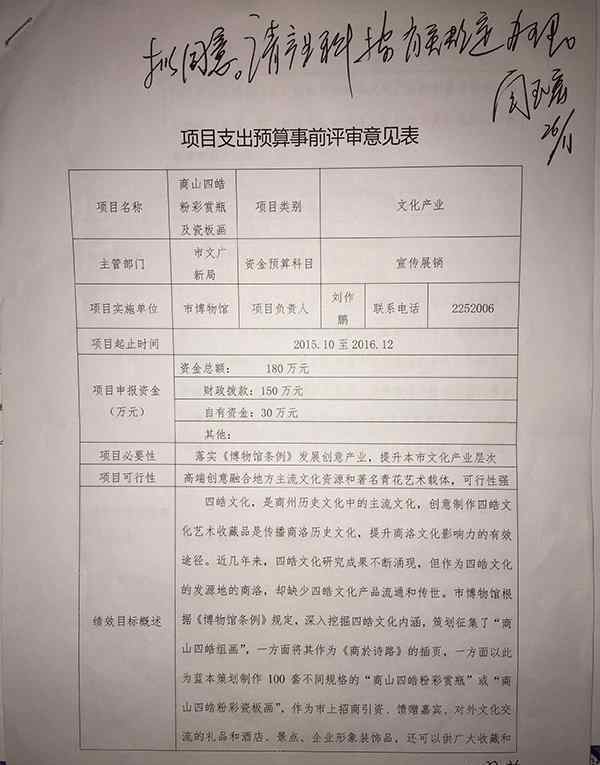 拟同意。请产业科按有关规定办理。
26/11
项目支出预算事前评审意见表
项目名称 商山四皓粉彩赏瓶及瓷板画 项目类别 文化产业
主管部门 市文广新局 资金预算科目 宣传展销
项目实施单位 市博物馆 项目负责人 刘作鹏 联系电话 2252006
项目起止时间 2015.10 至 2016.12
项目申报资金（万元） 资金总额： 180 万元
财政拨款：150 万元
自有资金：30 万元
其他：
项目必要性 落实《博物馆条例》发展创意产业，提升本市文化产业层次
项目可行性 高端创意融合地方主流文化资源和著名青花艺术载体，可行性强
绩效目标概述
四皓文化，是商州历史文化中的主流文化，创意制作四皓文
化艺术收藏品是传播商洛历史文化，提升商洛文化影响力的有效
途径。近几年来，四皓文化研究成果不断涌现，但作为四皓文化
的发源地的商洛，却缺少四皓文化产品流通和传世。市博物馆根
据《博物馆条例》规定，深入挖掘四皓文化内涵，策划征集了“商
山四皓组画”，一方面将其作为《商於诗路》的插页，一方面以此
为蓝本策划制作 100 套不同规格的“商山四皓粉彩赏瓶”或“商
山四皓粉彩瓷板画”，作为市上招商引资、馈赠嘉宾、对外文化交
流的礼品和酒店、景点、企业形象装饰品，还可以供广大收藏和